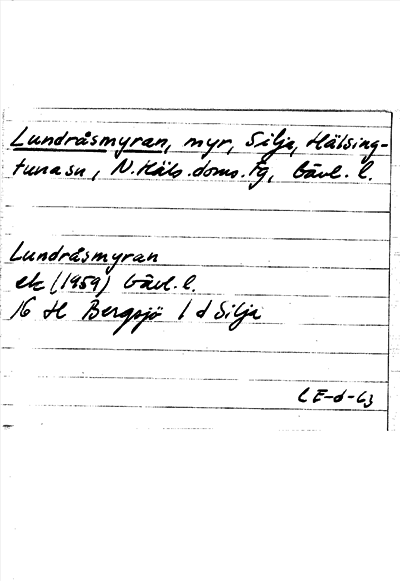 Lundråsmyran, myr, Silja, Hälsing-
tuna sn, N. Häls. doms. fg, Gävl. l.
Lundråsmyran
ek (1959) Gävl. l.
16 H Bergsjö 1 d Silja
LE-d-63